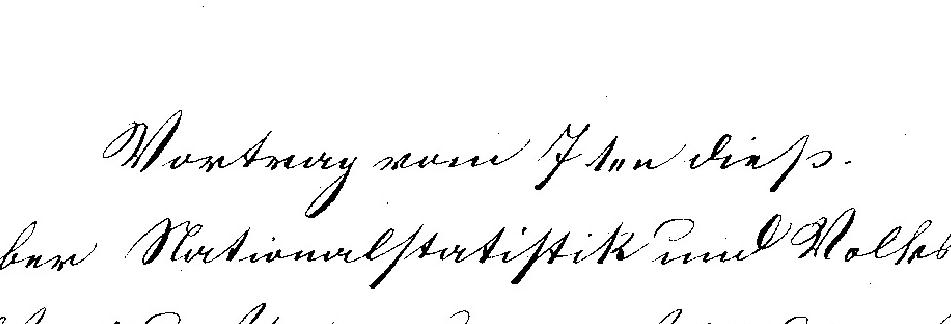 Vortrag vom 7ten dieß.
ber Nationalstatistik und Volks